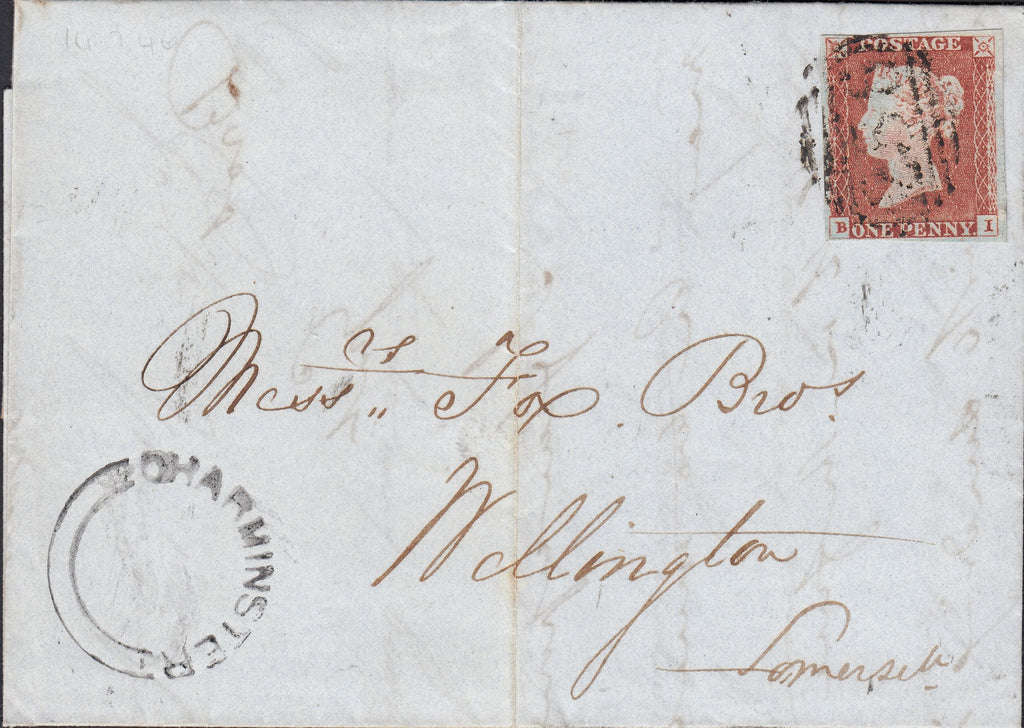 14.7.46
POSTAGE
B ONE PENNY. I
Messrs„ Fox. Bros.
Wellington
Somerset
CHARMINSTER